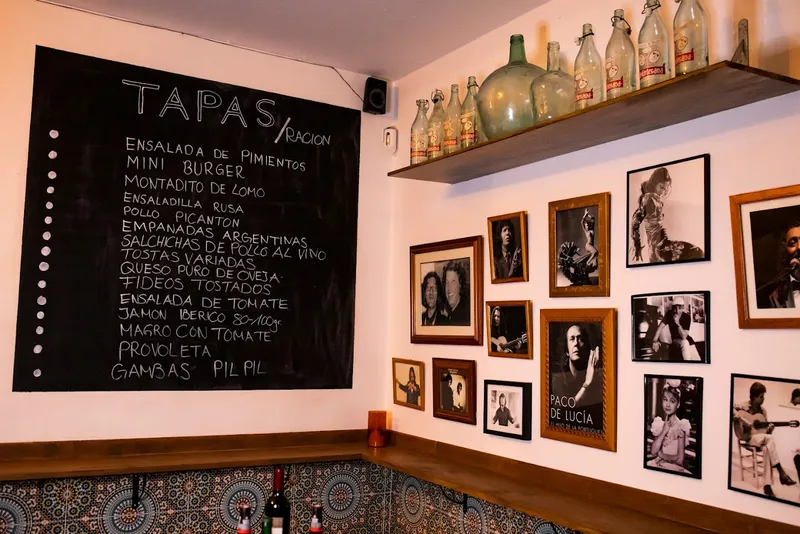 TAPAS/RACION
ENSALADA DE PIMIENTOS
MINI BURGER
MONTADITO DE LOMO
ENSALADILLA RUSA
POLLO PICANTON
EMPANADAS ARGENTINAS
SALCHICHAS DE POLLO AL VINO
TOSTAS VARIADAS
QUESO PURO DE OVEJA.
FIDEOS TOSTADOS
ENSALADA DE TOMATE
JAMON IBERICO 80-100gr.
MAGRO CON TOMATE
PROVOLETA
GAMBAS PIL PIL
PACO
DE LUCÍA
EL HIJO DE LA PORTUGUESA